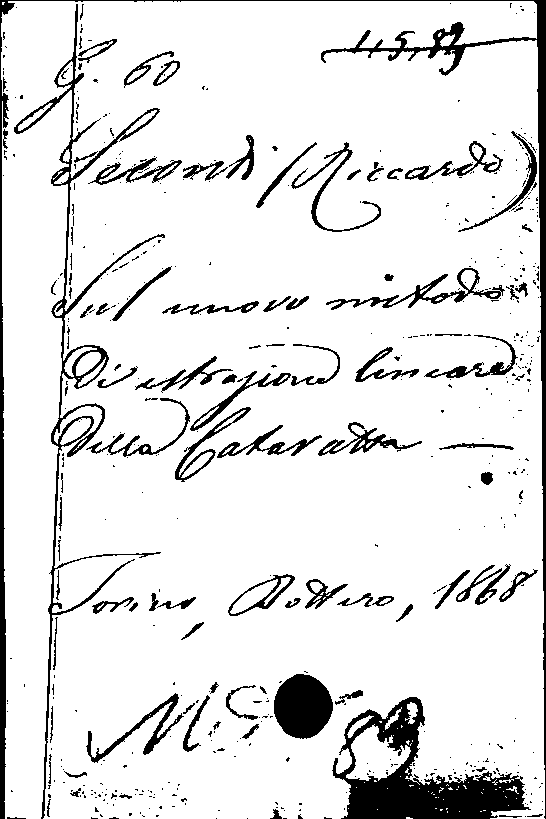 115,83
G. 60
Secondi (Riccardo)
Sul nuovo metodo
di estrazione lineare
della Cataratta —
Torino, Bottero, 1868
83